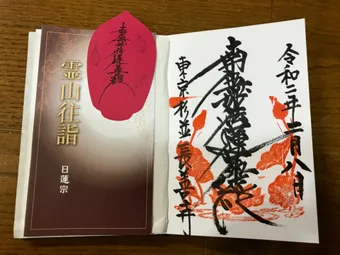 霊山往詣
日蓮宗
南無妙法蓮華経
令和二年二月八月
南無妙法蓮華経
東京杉並